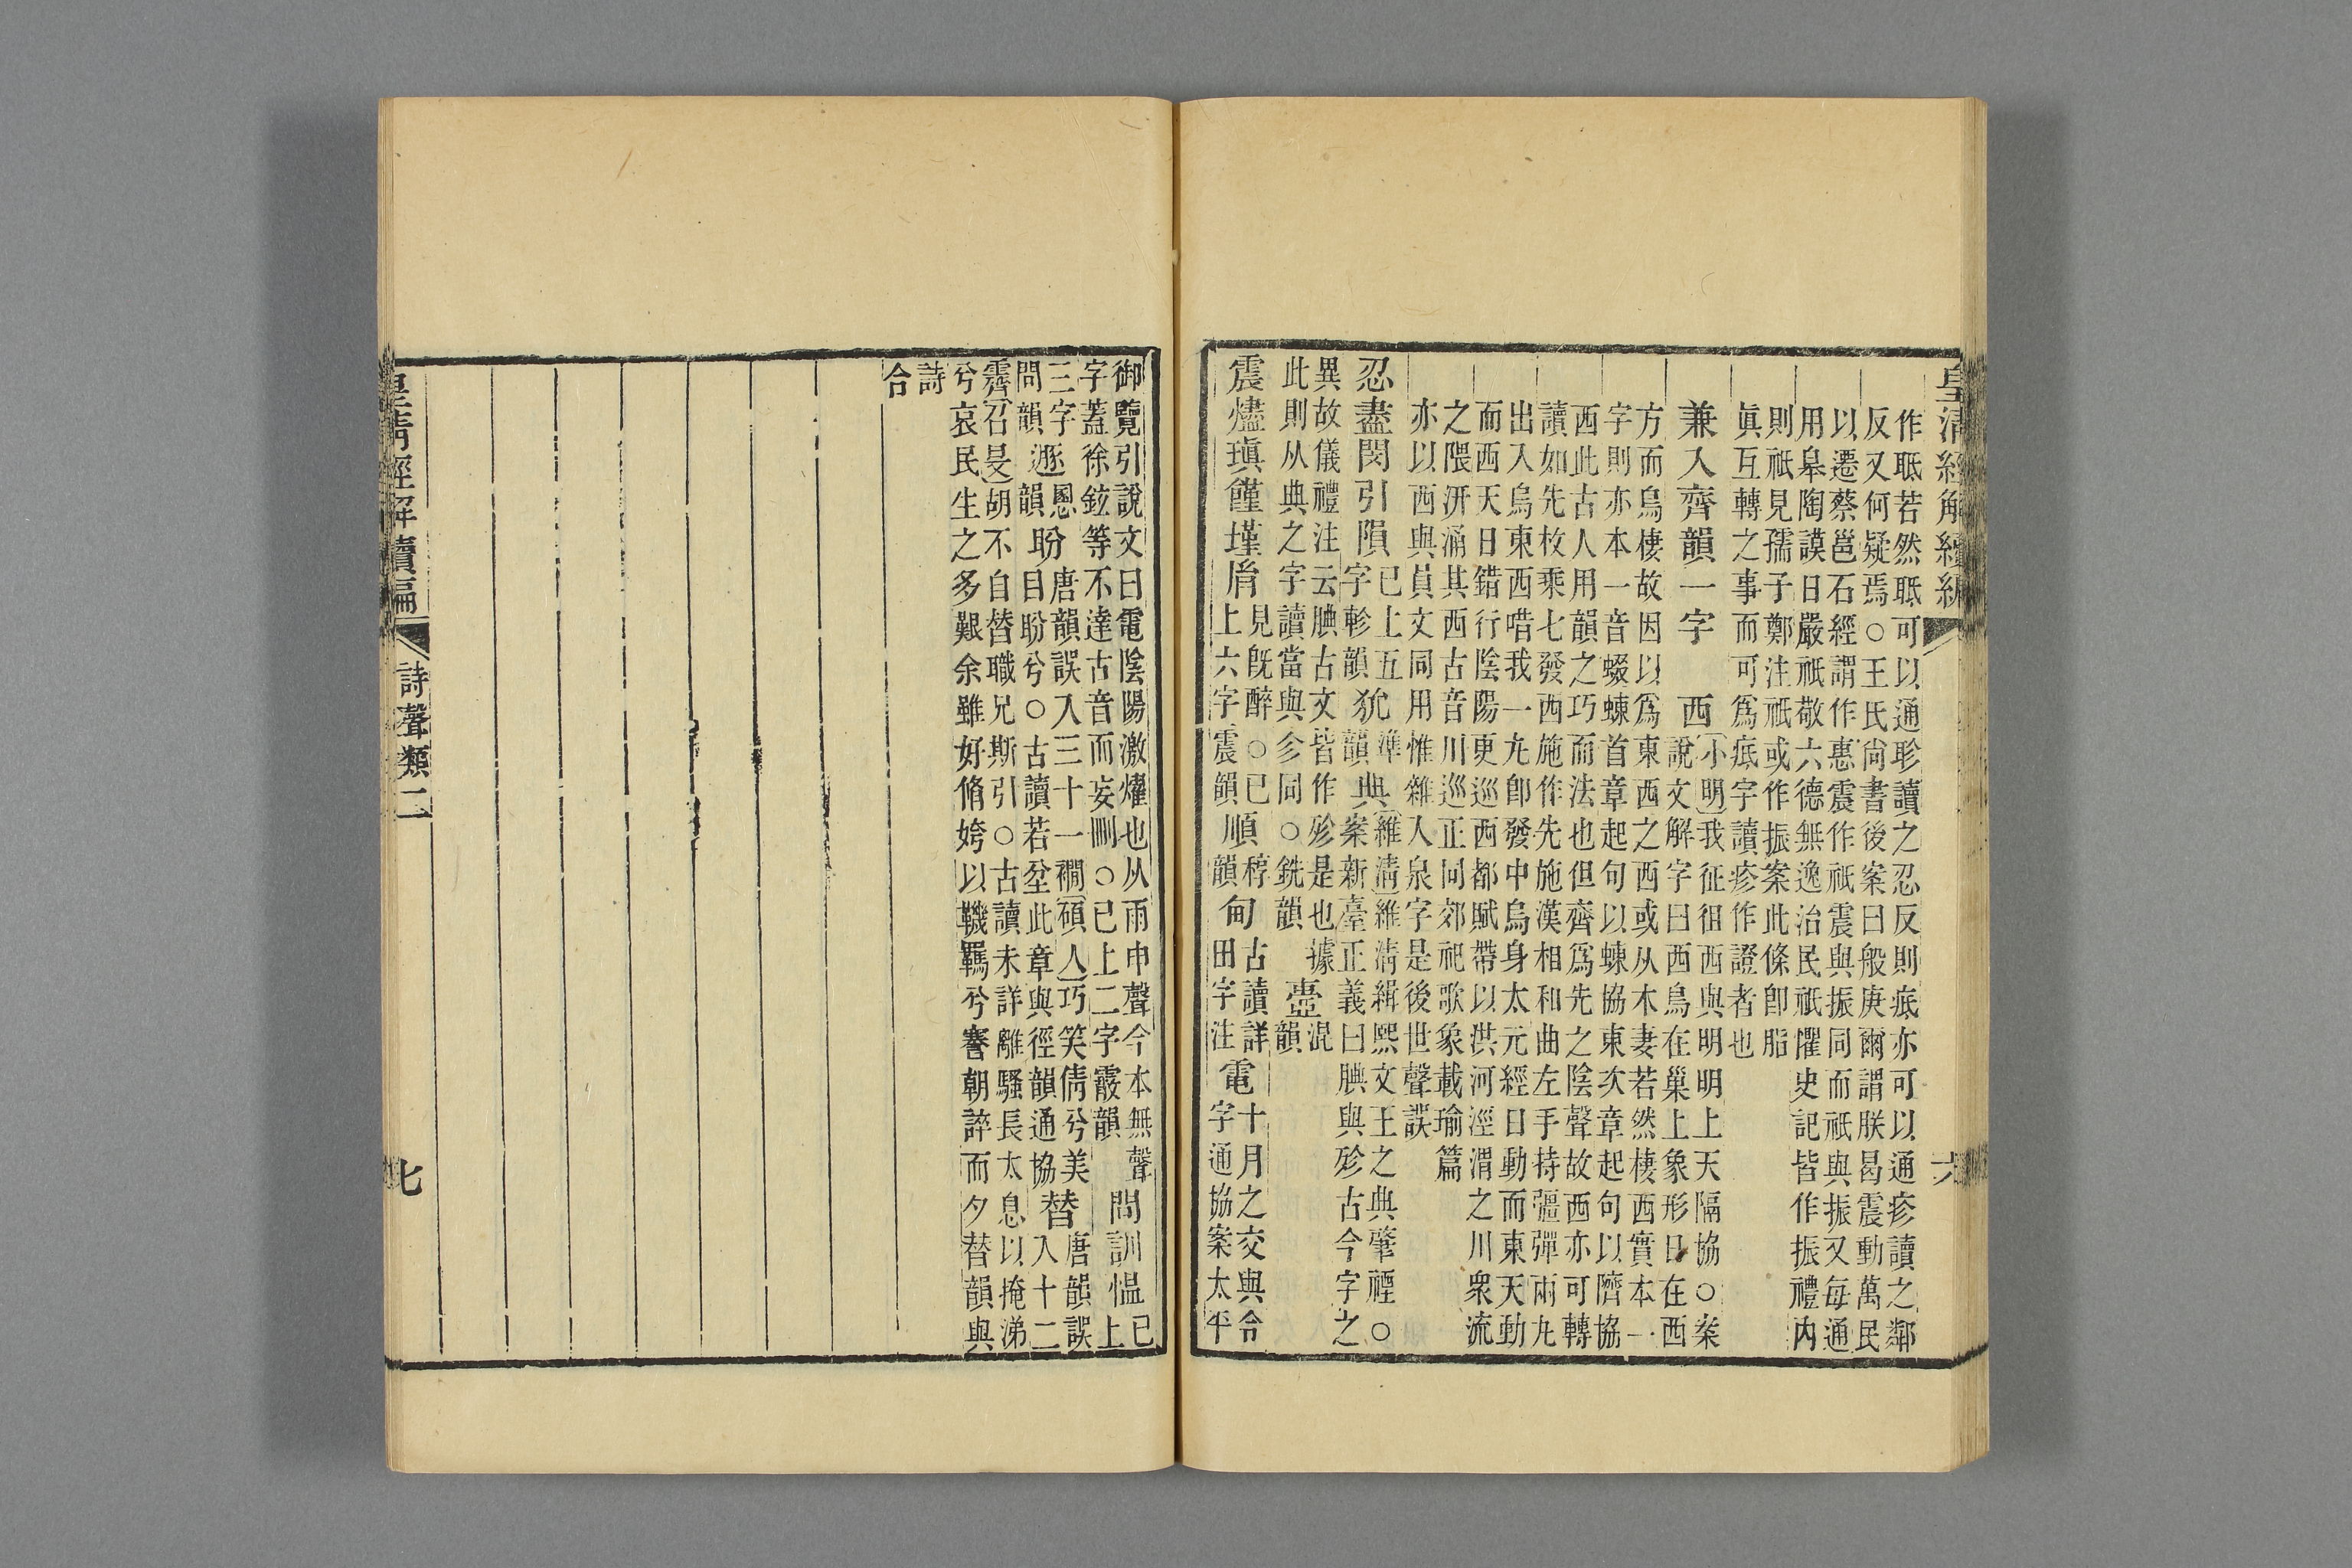 皇清經解續編
六
作眡若然眡可以通聄讀之忍反則疷亦可以通疹讀之鄰
反又何疑焉○王氏尙書後案曰般庚爾謂朕曷震動萬民
以遷蔡邕石經謂作惠震作祇震與振同而祇與振又每通
用皋陶謨日嚴祇敬六德無逸治民祇懼史記皆作振禮內
則祇見孺子鄭注祇或作振案此條卽脂
眞互轉之事而可爲疷字讀疹作證者也
兼入齊韻一字
西
小明我征徂西與明明上天隔協○案
說文解字曰西鳥在巢上象形日在西
方而鳥棲故因以爲東西之西或从木妻若然棲西實本一
字則亦本一音蝃蝀首章起句以蝀協東次章起句以隮協
西此古人用韻之巧而法也但齊爲先之陰聲故西亦可轉
讀如先枚乘七發西施作先施漢相和曲左手持彊彈兩丸
出入烏東西唶我一丸卽發中烏身太元經日動而東天動
而西天日錯行陰陽更巡西都賦帶以洪河涇渭之川衆流
之隈汧涌其西古音川巡正同郊祀歌象載瑜篇
亦以西與員文同用惟雜人泉字是後世聲誤
忍盡閔引隕
已上五
字軫韻
狁
準
韻
典
維淸維淸緝熙文王之典肇禋○
案新臺正義曰腆與殄古今字之
異故儀禮注云腆古文皆作殄是也據
此則从典之字讀當與㐱同○銑韻
壼
混
韻
震燼瑱僅墐㡧
見旣醉○已
上六字震韻
順
稕
韻
甸
古讀詳
田字注
電
十月之交與令
字通協案太平
御覽引說文曰電陰陽激燿也从雨申聲今本無聲
字蓋徐鉉等不達古音而妄刪○已上二字霰韻
問訓慍
已上
三字
問韻
遯
慁
韻
盼
唐韻誤入三十一襉碩人巧笑倩兮美
目盼兮○古讀若坌此章與徑韻通協
替
唐韻誤
入十二
霽召旻胡不自替職兄斯引○古讀未詳離騷長太息以掩涕
兮哀民生之多艱余雖好脩姱以鞿羈兮謇朝誶而夕替韻與
詩
合
皇淸經解續編
詩聲類二
七